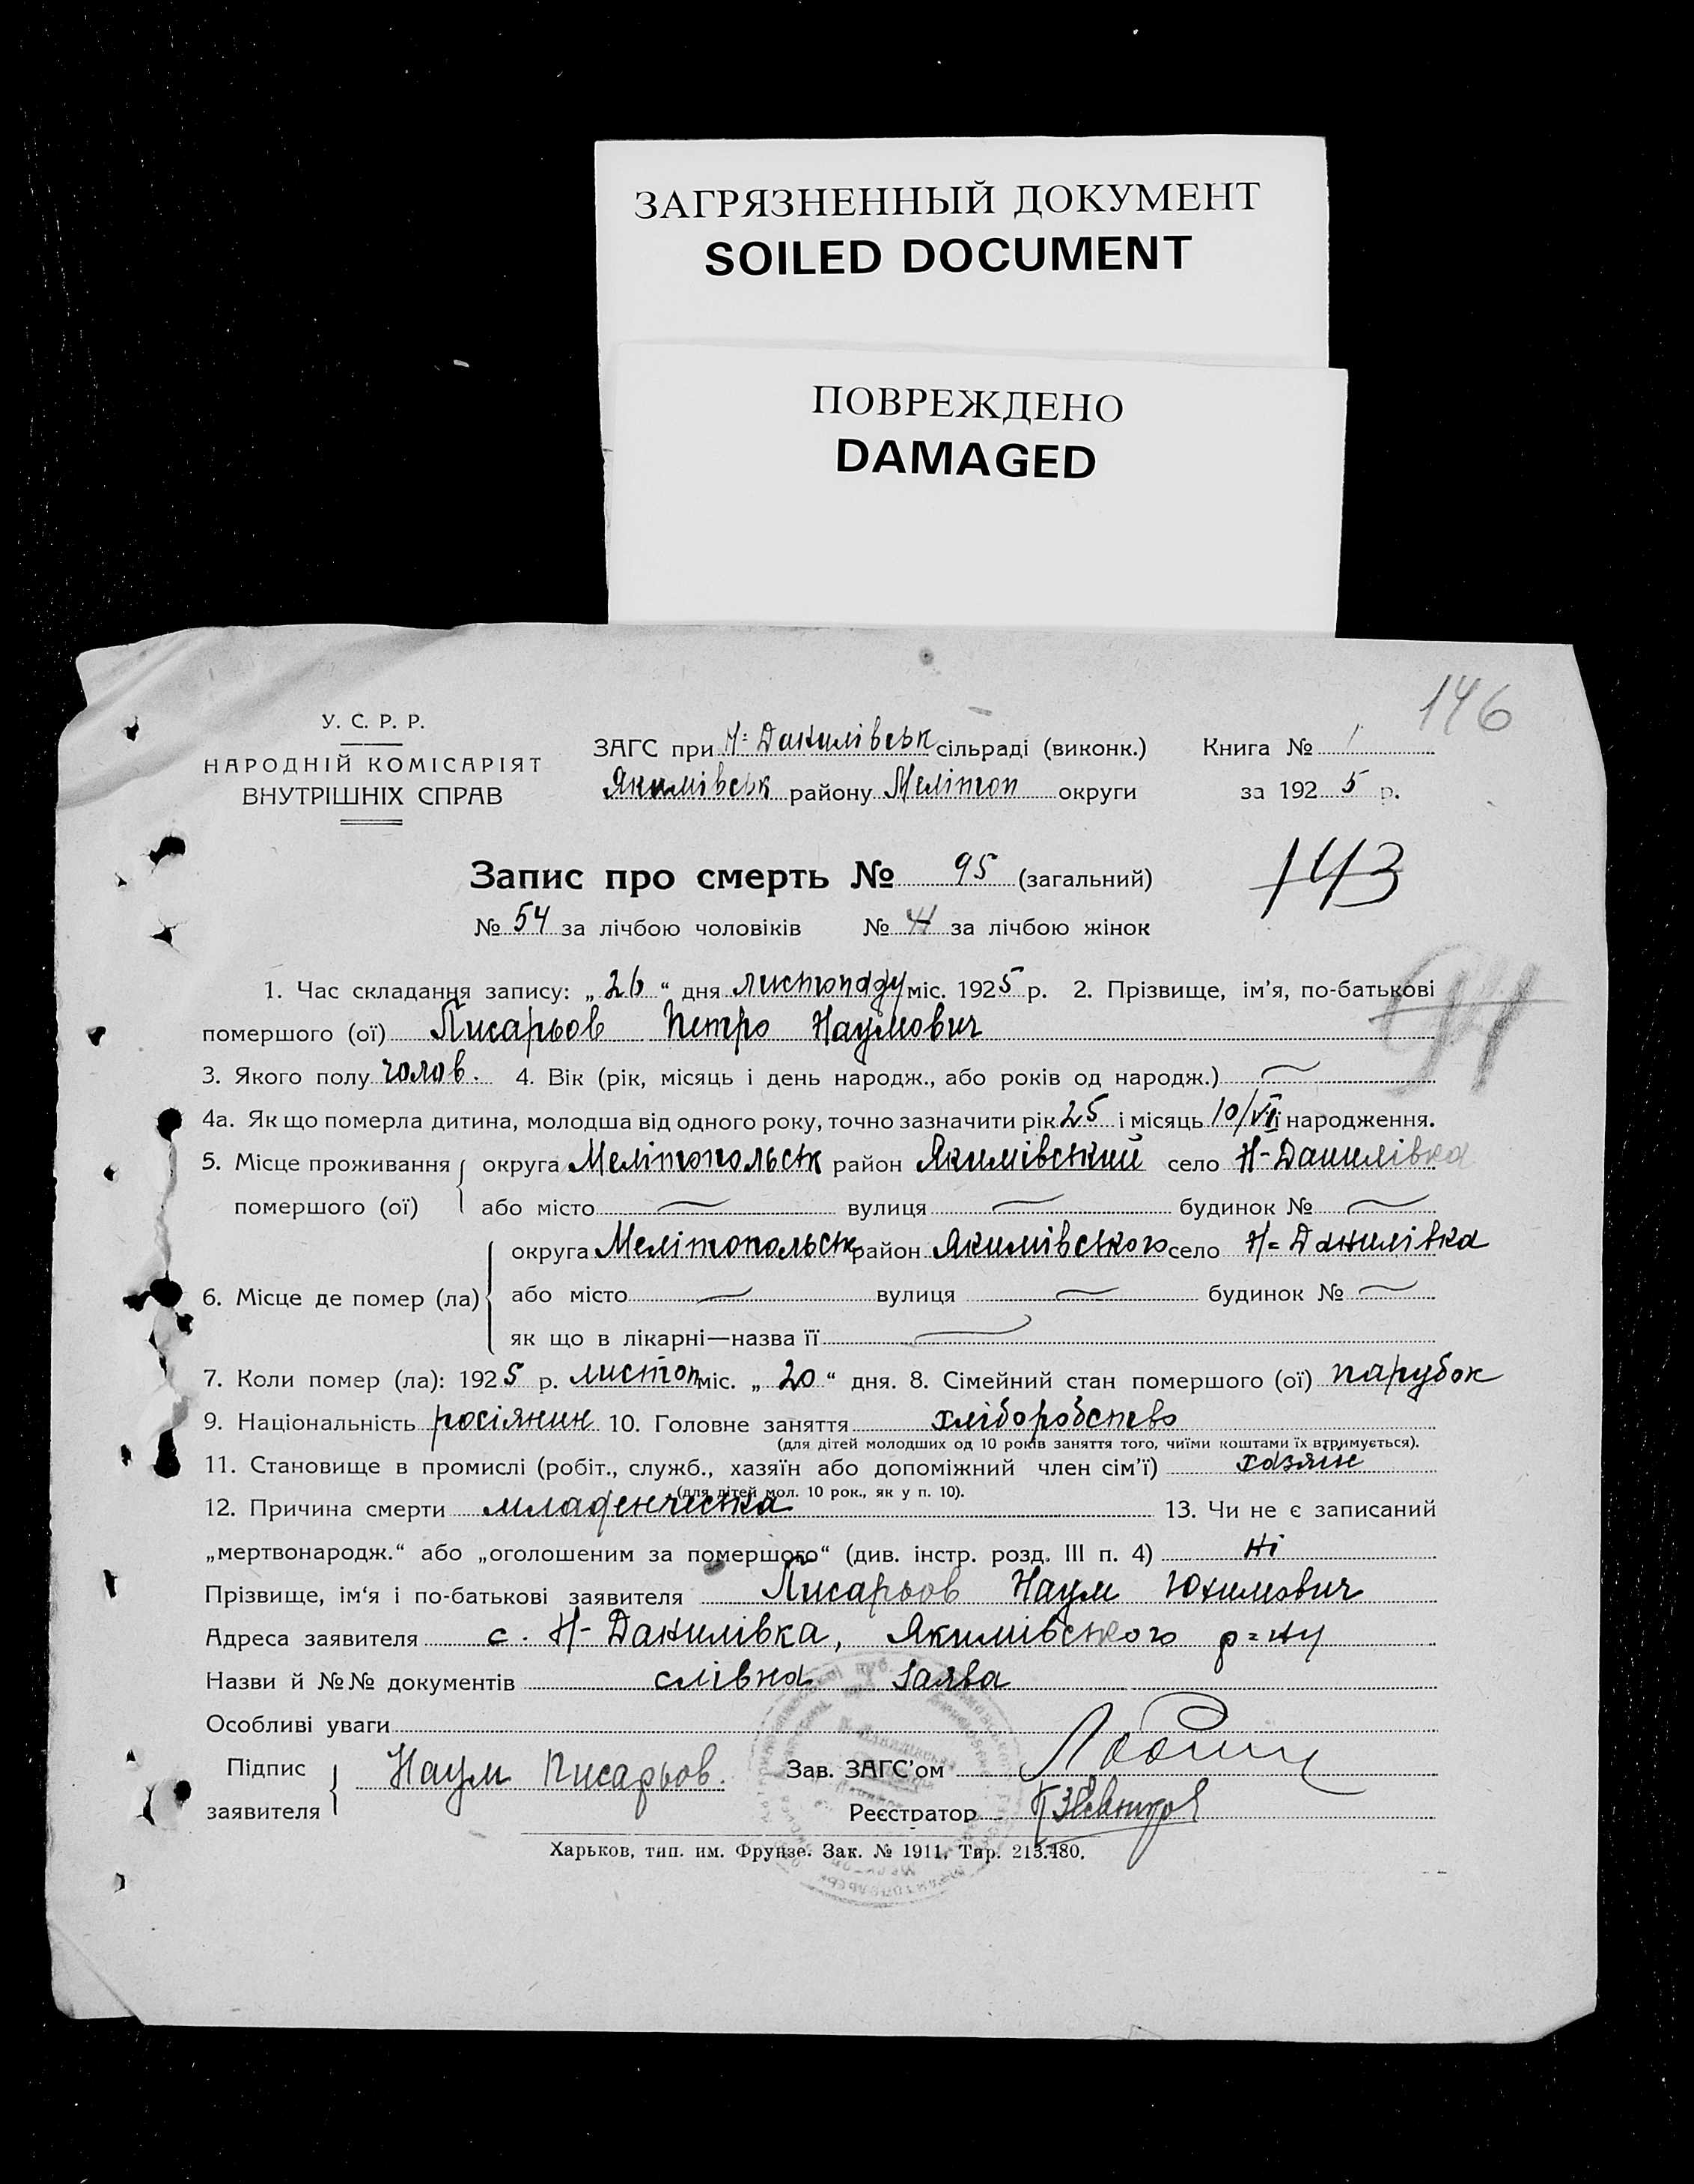 ЗАГРЯЗНЕННЫЙ ДОКУМЕНТ
SOILED DOCUMENT
ПОВРЕЖДЕНО
DAMAGED
146
У. С. Р. Р.
НАРОДНІЙ КОМІСАРІЯТ
ВНУТРІШНІХ СПРАВ
ЗАГС при Н=Данилівськ сільраді (виконк.) Книга № 1
Якимівськ району Мелітоп округи за 1925 р.
Запис про смерть № 95 (загальний)
143
№ 54 за лічбою чоловіків № 41 за лічбою жінок
1. Час складання запису: „26“ дня листопаду міс. 1925 р. 2. Прізвище, ім’я, по-батькові
помершого (ої) Писарьов Петро Наумович
3. Якого полу чолов. 4. Вік (рік, місяць і день народж., або років од народж.)
4а. Як що померла дитина, молодша від одного року, точно зазначити рік 25 і місяць 10/VII народження.
5. Місце проживання помершого (ої) округа Мелітопольськ район Якимівський село Н-Данилівка
або місто вулиця будинок №
6. Місце де помер (ла) округа Мелітопольськ район Якимівського село Н=Данилівка
або місто вулиця будинок №
як що в лікарні—назва її
7. Коли помер (ла): 1925 р. листоп міс. „20“ дня. 8. Сімейний стан помершого (ої) парубок
9. Національність росіянин 10. Головне заняття хліборобство
(для дітей молодших од 10 років заняття того, чиїми коштами їх втримується).
11. Становище в промислі (робіт., служб., хазяїн або допоміжний член сім’ї) хазяін
(для дітей мол. 10 рок., як у п. 10).
12. Причина смерти младенческа 13. Чи не є записаний
„мертвонародж.“ або „оголошеним за помершого“ (див. інстр. розд. III п. 4) Ні
Прізвище, ім‘я і по-батькові заявителя Писарьов Наум Юхимович
Адреса заявителя с. Н-Данилівка, Якимівського р=ну
Назви й №№ документів слівна заява
Особливі уваги
Підпис заявителя Наум Писарьов. Зав. ЗАГС’ом
Реєстратор
Харьков, тип. им. Фрунзе. Зак. № 1911. Тир. 213.480.